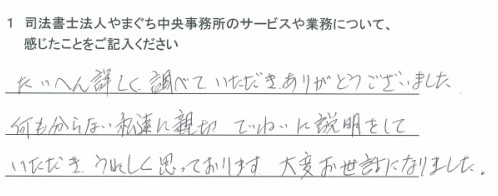 1 司法書士法人やまぐち中央事務所のサービスや業務について、
感じたことをご記入ください
たいへん詳しく調べていただきありがとうございました。
何も分らない私達に親切 ていねいに説明をして
いただき、うれしく思っております。大変お世話になりました。